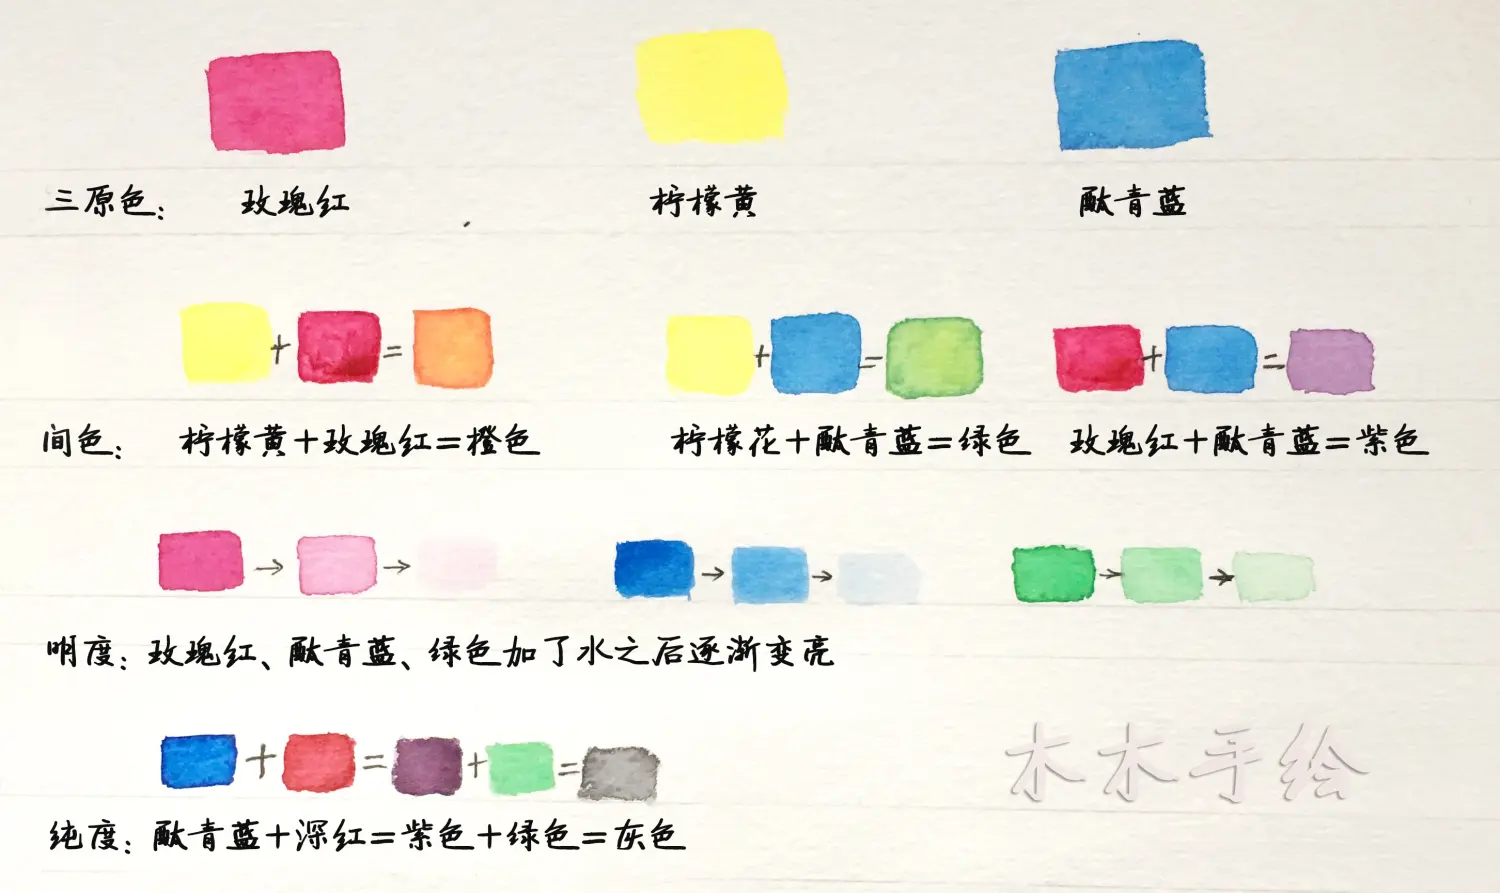 三原色： 玫瑰红 柠檬黄 酞青蓝
+ = + = + =
间色： 柠檬黄+玫瑰红=橙色 柠檬花+酞青蓝=绿色 玫瑰红+酞青蓝=紫色
→ → → → → →
明度：玫瑰红、酞青蓝、绿色加了水之后逐渐变亮
+ = + =
木木手绘
纯度：酞青蓝+深红=紫色+绿色=灰色